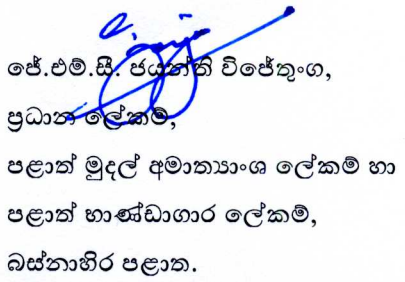 ජේ.එම්.සී. ජයන්ති විජේතුංග,
ප්‍රධාන ලේකම්,
පළාත් මුදල් අමාත්‍යාංශ ලේකම් හා
පළාත් භාණ්ඩාගාර ලේකම්,
බස්නාහිර පළාත.